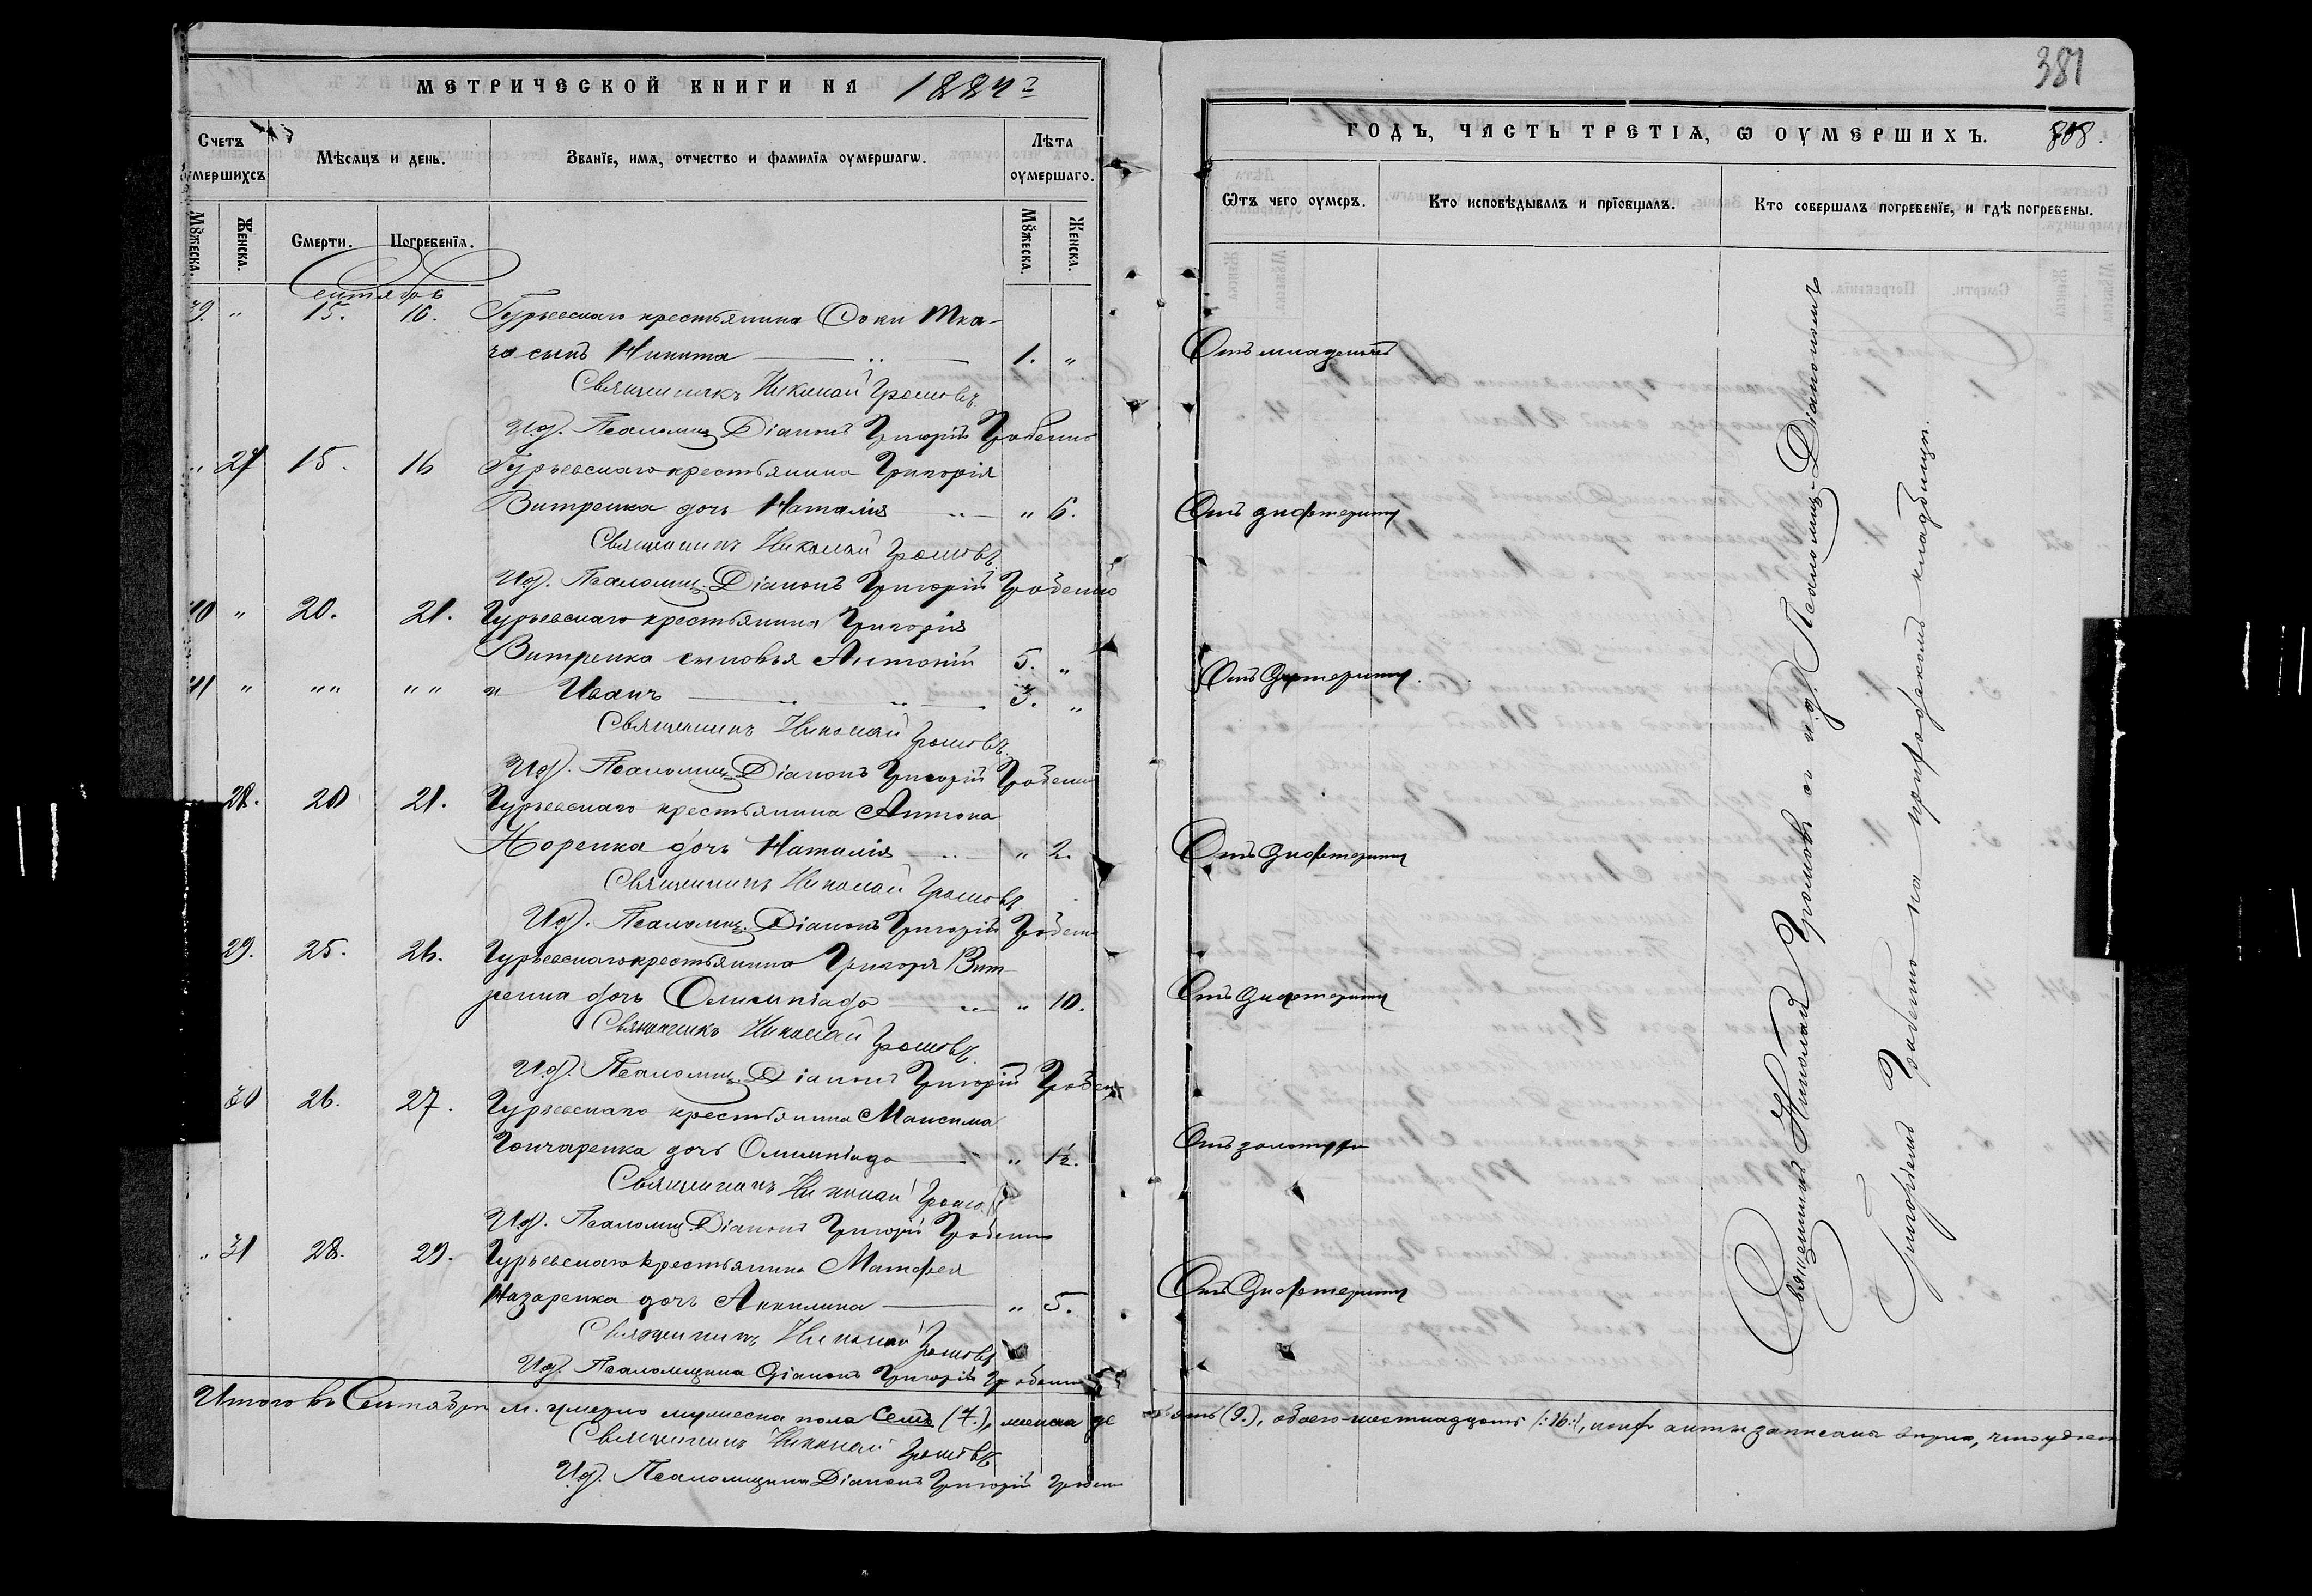 МЕТРИЧЕСКОЙ КНИГИ НА 1884 г
Счетъ оумершихсѧ
Мѣсѧцъ и день.
Званїе, имѧ, отчество и фамилїѧ оумершагѡ.
Лѣта оумершаго.
Мꙋжеска.
Женска.
Смерти.
Погребенїѧ.
Мꙋжеска.
Женска.
Сентябрь
39. " 15. 16. Гурьевскаго крестьянина Ѳоки Тка-
ча сынъ Никита 1. "
Священникъ Николай Громовъ.
И.д. Псаломщ. Діаконъ Григорій Гробенко
" 27 15. 16 Гурьевскаго крестьянина Григорія
Витренка дочь Наталія " 6.
Священникъ Николай Громовъ.
И.д. Псаломщ. Діаконъ Григорій Гробенко
40 " 20. 21. Гурьевскаго крестьянина Григорія
Витренка сыновья Антоній 5. "
41 " " " " " " Иванъ 3. "
Священникъ Николай Громовъ.
И.д. Псаломщ. Діаконъ Григорій Гробенко
28. 20 21. Гурьевскаго крестьянина Антона
Норенка дочь Наталія " 2.
Священникъ Николай Громовъ.
И.д. Псаломщ. Діаконъ Григорій Гробенко
29. 25. 26. Гурьевскаго крестьянина Григоря Вит-
ренка дочь Олимпіада " 10.
Священникъ Николай Громовъ.
И.д. Псаломщ. Діаконъ Григорій Гробенко
30 26. 27. Гурьевскаго крестьянина Максима
Гончаренка дочь Олимпіада " 1½.
Священникъ Николай Громовъ
И.д. Псаломщ. Діаконъ Григорій Гробенко
" 31 28. 29. Гурьевскаго крестьянина Матфея
Назаренка дочь Акилина " 5.
Священникъ Николай Громовъ
И.д. Псаломщика Діаконъ Григорій Гробенко
Итого въ Сентябрѣ м. умерло мужеска пола семь (7.), женска де
Священникъ Николай Громовъ
И.д. Псаломщика Діаконъ Григорій Гробенко
381
ГОДЪ, ЧАСТЬ ТРЕТІѦ, Ѡ ОУМЕРШИХЪ. 808.
Ѿтъ чего оумеръ.
Кто исповѣдывалъ и прїобщалъ.
Кто совершалъ погребенїе, и гдѣ погребены.
Отъ младенческ
Отъ дифтерита
Отъ дифтерита.
Отъ дифтерита
Отъ дифтерита
Отъ золотухи
Отъ дифтерита
Священникъ Николай Громовъ съ и.д. Псаломщ. Діакономъ
Григоріемъ Гробенко на приходскомъ кладбищѣ.
вять (9.), обоего шестнадцать /:16:/, акты записаны вѣрно,